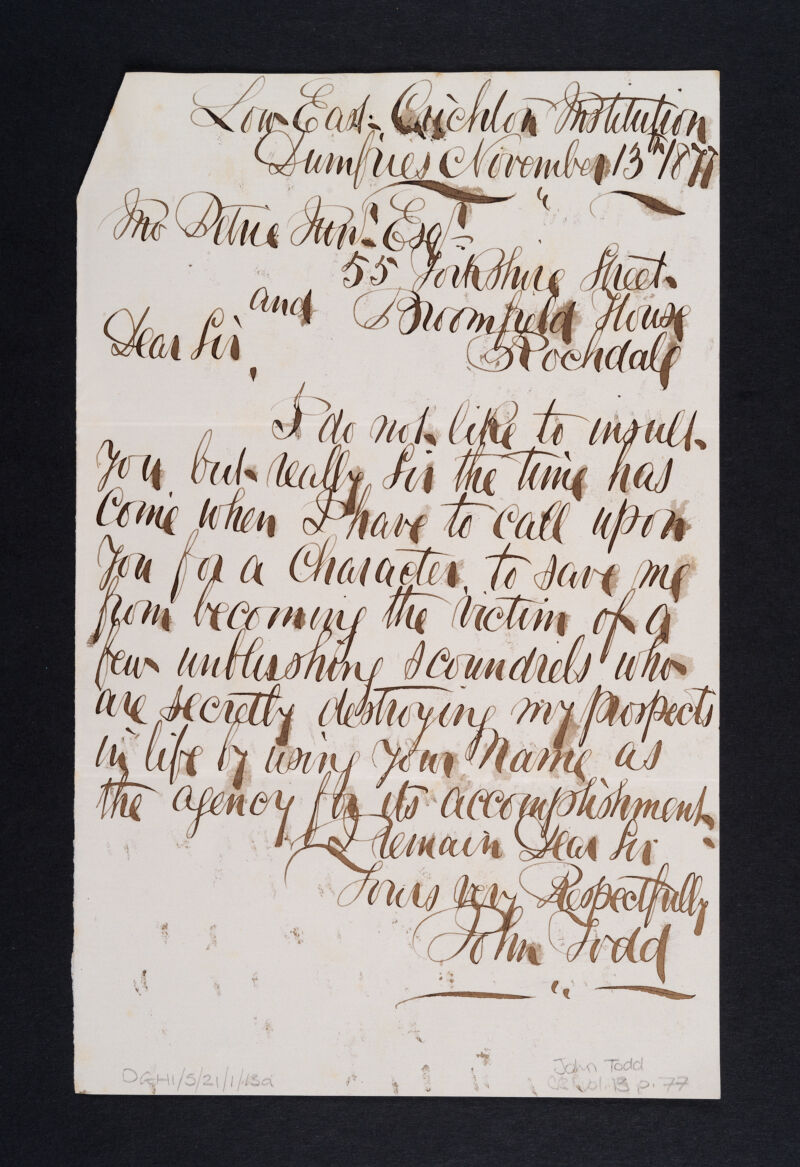 Low East: Crichton Institution
Dumfries November 13th 1877
Jno Petrie Junr. Esqr.
55 Yorkshire Street.
and Broomfield House
Rochdale
Dear Sir,
I do not like to insult
you but really Sir the time has
come when I have to call upon
you for a Character, to save me
from becoming the victim of a
few unblushing scoundrels who
are secretly destroying my prospects
in life by using your Name as
the agency for its accomplishment.
I remain Dear Sir
Yours very Respectfully
John Todd
DGH1/5/21/1/13a
John Todd
vol. 13 p. 77